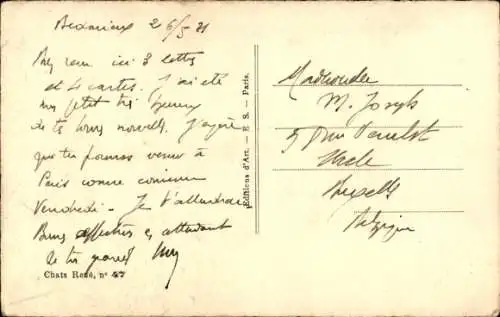 26/5 31
Reçu ici 3 lettres
et 4 cartes. J'ai été
mon petit très heureux
de tes bonnes nouvelles. J'espère
que tu pourras venir à
Paris comme convenu
Vendredi. Je t'attendrai
Bonnes affections en attendant
de tes
Chats René, n° 57
Editions d'Art. - E. S. - Paris.
Mademoiselle
M. Joseph
5 rue
Uccle
Bruxelles
Belgique